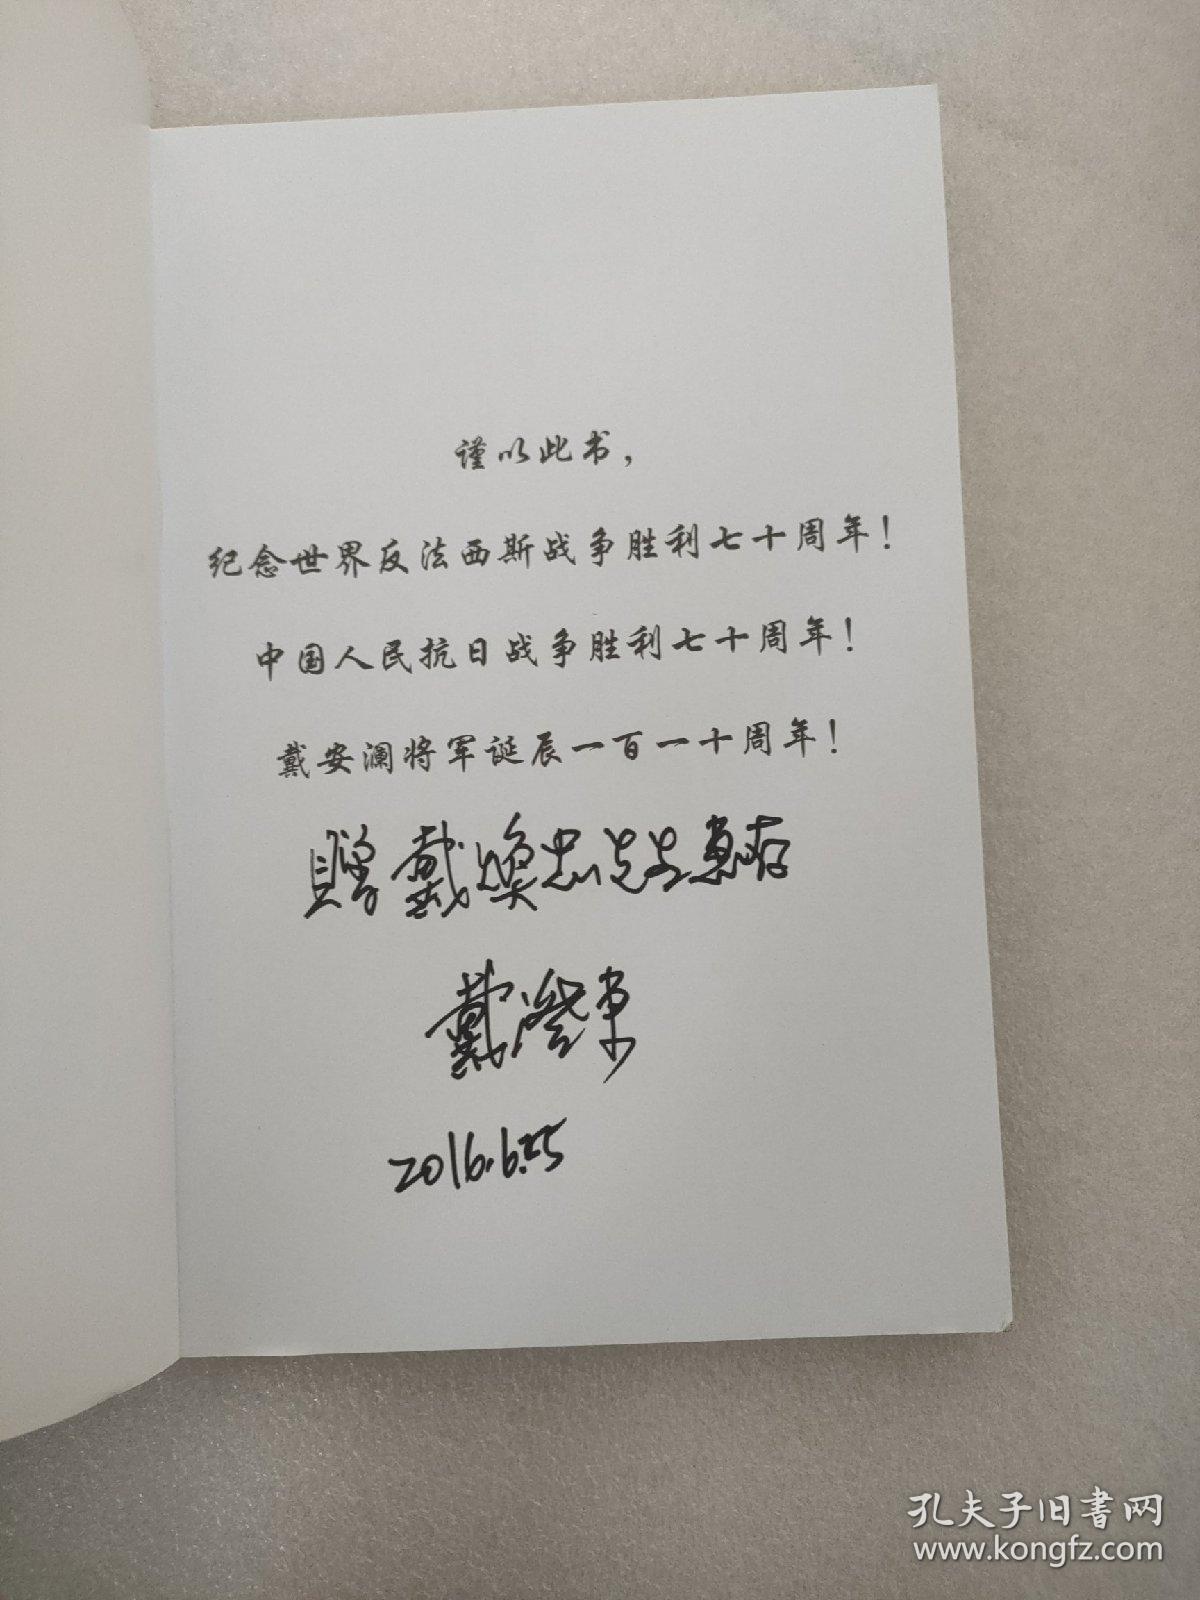 谨以此书，
纪念世界反法西斯战争胜利七十周年！
中国人民抗日战争胜利七十周年！
戴安澜将军诞辰一百一十周年！
贈戴焕忠先生惠存
戴澄东
2016.6.25
孔夫子旧書网
www.kongfz.com